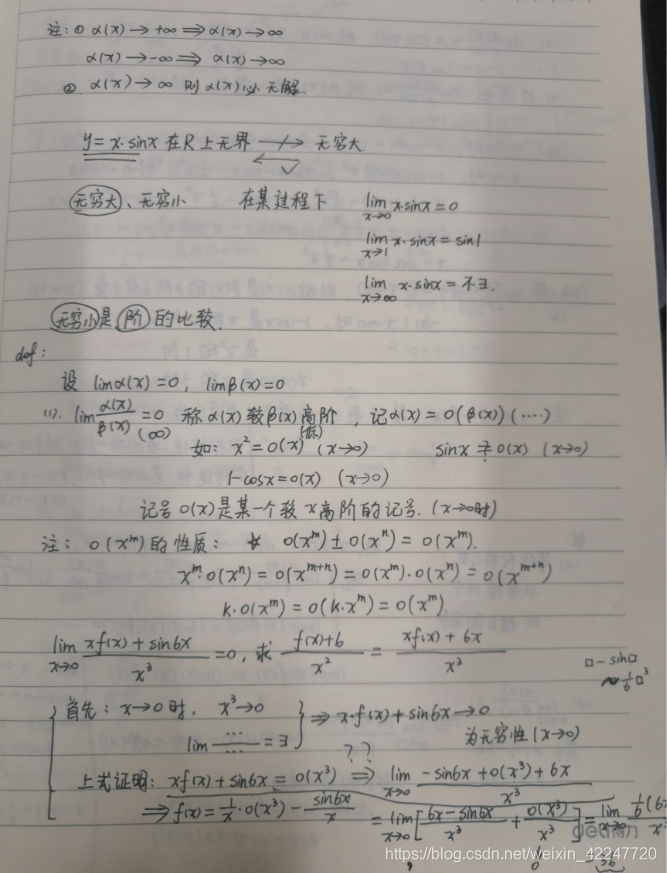 注: ① α(x) → +∞ ⟹ α(x) → ∞
α(x) → -∞ ⟹ α(x) → ∞
② α(x) → ∞ 则 α(x) 必无解.
y = x·sinx 在 R 上无界 ↛ 无穷大
← ✓
无穷大、无穷小 在某过程下 lim x→0 x·sinx = 0
lim x→1 x·sinx = sin1
lim x→∞ x·sinx = 不∃.
无穷小是阶的比较.
def:
设 limα(x) = 0, limβ(x) = 0
(1). lim α(x)/β(x) = 0 (∞) 称 α(x) 较 β(x) 高阶 (低), 记 α(x) = o(β(x)) (....)
如: x² = o(x) (x→0) sinx ≠ o(x) (x→0)
1-cosx = o(x) (x→0)
记号 o(x) 是某一个较 x 高阶的记号. (x→0时)
注: o(x^m) 的性质: o(x^m) ± o(x^n) = o(x^m).
x^m·o(x^n) = o(x^(m+n)) = o(x^m)·o(x^n) = o(x^(m+n))
k·o(x^m) = o(k·x^m) = o(x^m)
lim x→0 (xf(x)+sin6x)/x³ = 0, 求 (f(x)+6)/x² = (xf(x)+6x)/x³
□-sin□
~ 1/6 □³
首先: x→0 时, x³→0
lim ⋯/⋯ = ∃ ⟹ x·f(x)+sin6x → 0
为无穷性 (x→0)
??
上式证明: xf(x)+sin6x = o(x³) ⟹ lim x→0 (-sin6x+o(x³)+6x)/x³
⟹ f(x) = 1/x·o(x³) - sin6x/x = lim x→0 [(6x-sin6x)/x³ + o(x³)/x³] = lim x→0 1/6(6x
0
36
https://blog.csdn.net/weixin_42247720